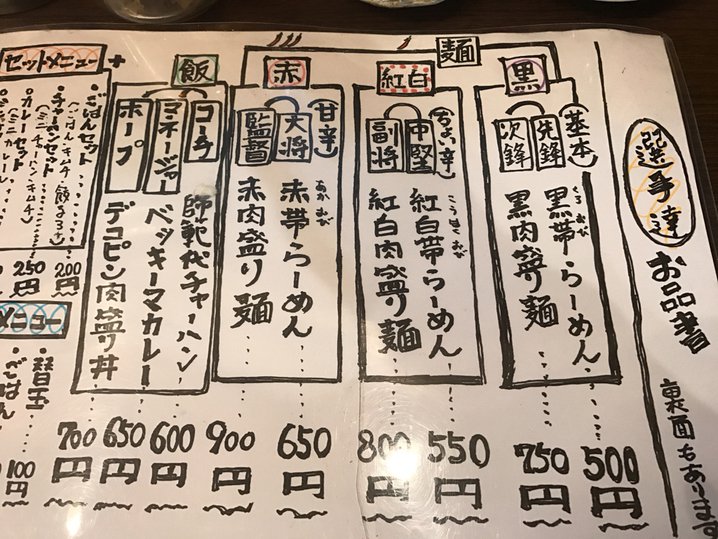 選手達
お品書
裏面もあります
麺
黒
基本
先鋒
黒帯らーめん
くろおび
500円
次鋒
黒肉盛り麺
750円
紅白
ちょい辛
中堅
紅白帯らーめん
こうはくおび
550円
副将
紅白肉盛り麺
800円
赤
甘辛
大将
赤帯らーめん
あかおび
650円
監督
赤肉盛り麺
900円
飯
コーチ
師範代チャーハン
600円
マネージャー
ベッキーマカレー
650円
ホープ
デコピン肉盛り丼
700円
セットメニュー
+
・ごはんセット
200円
・チャーハンセット
250円
・カレーセット
円
メニュー
・替玉
100円
・ごはん